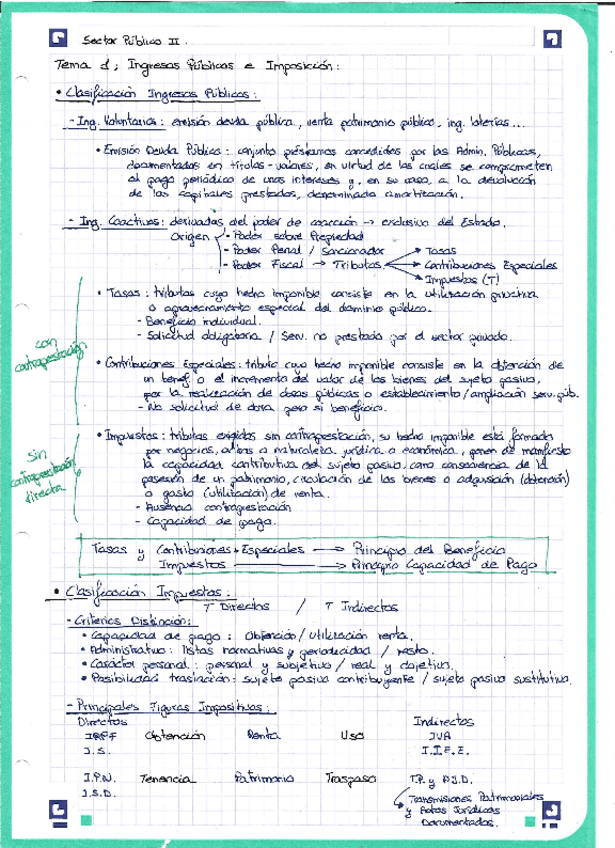 Sector Público II.
Tema 1: Ingresos Públicos e Imposición:
• Clasificación Ingresos Públicos:
- Ing. Voluntarios: emisión deuda pública, venta patrimonio público, ing. loterías...
• Emisión Deuda Pública: conjunto préstamos concedidos por las Admin. Públicas,
documentados en títulos-valores, en virtud de los cuales se comprometen
al pago periódico de unos intereses y, en su caso, a la devolución
de los capitales prestados, denominada amortización.
- Ing. Coactivos: derivados del poder de coacción → exclusivo del Estado.
Origen - Poder sobre Propiedad
- Poder Penal / Sancionador → Tasas
- Poder Fiscal → Tributos → Contribuciones Especiales
→ Impuestos (T)
con
contraprestación
• Tasas: tributos cuyo hecho imponible consiste en la utilización privativa
o aprovechamiento especial del dominio público.
- Beneficio individual.
- Solicitud obligatoria / Serv. no prestado por el sector privado.
• Contribuciones Especiales: tributo cuyo hecho imponible consiste en la obtención de
un benef. o el incremento del valor de los bienes del sujeto pasivo,
por la realización de obras públicas o establecimiento/ampliación serv. púb.
- No solicitud de obra pero sí beneficio.
Sin
contraprestación
directa
• Impuestos: tributos exigidos sin contraprestación, su hecho imponible está formado
por negocios, actos o naturaleza jurídica o económica, ponen de manifiesto
la capacidad contributiva del sujeto pasivo, como consecuencia de la
posesión de un patrimonio, circulación de los bienes o adquisición (obtención)
o gasto (utilización) de renta.
- Ausencia contraprestación
- Capacidad de pago.
Tasas y Contribuciones Especiales → Principio del Beneficio
Impuestos → Principio Capacidad de Pago
• Clasificación Impuestos:
T Directos / T Indirectos
- Criterios Distinción:
• Capacidad de pago: Obtención / Utilización renta.
• Administrativo: listas normativas y periodicidad / resto.
• Carácter personal: personal y subjetivo / real y objetivo.
• Posibilidad traslación: sujeto pasivo contribuyente / sujeto pasivo sustitutivo.
- Principales Figuras Impositivas:
Directos Indirectos
IRPF Obtención Renta Uso IVA
I.S. I.I.E.E.
I.P.N. Tenencia Patrimonio Traspaso T.P. y A.J.D.
I.S.D.
Transmisiones Patrimoniales
y Actos Jurídicos
Documentados.